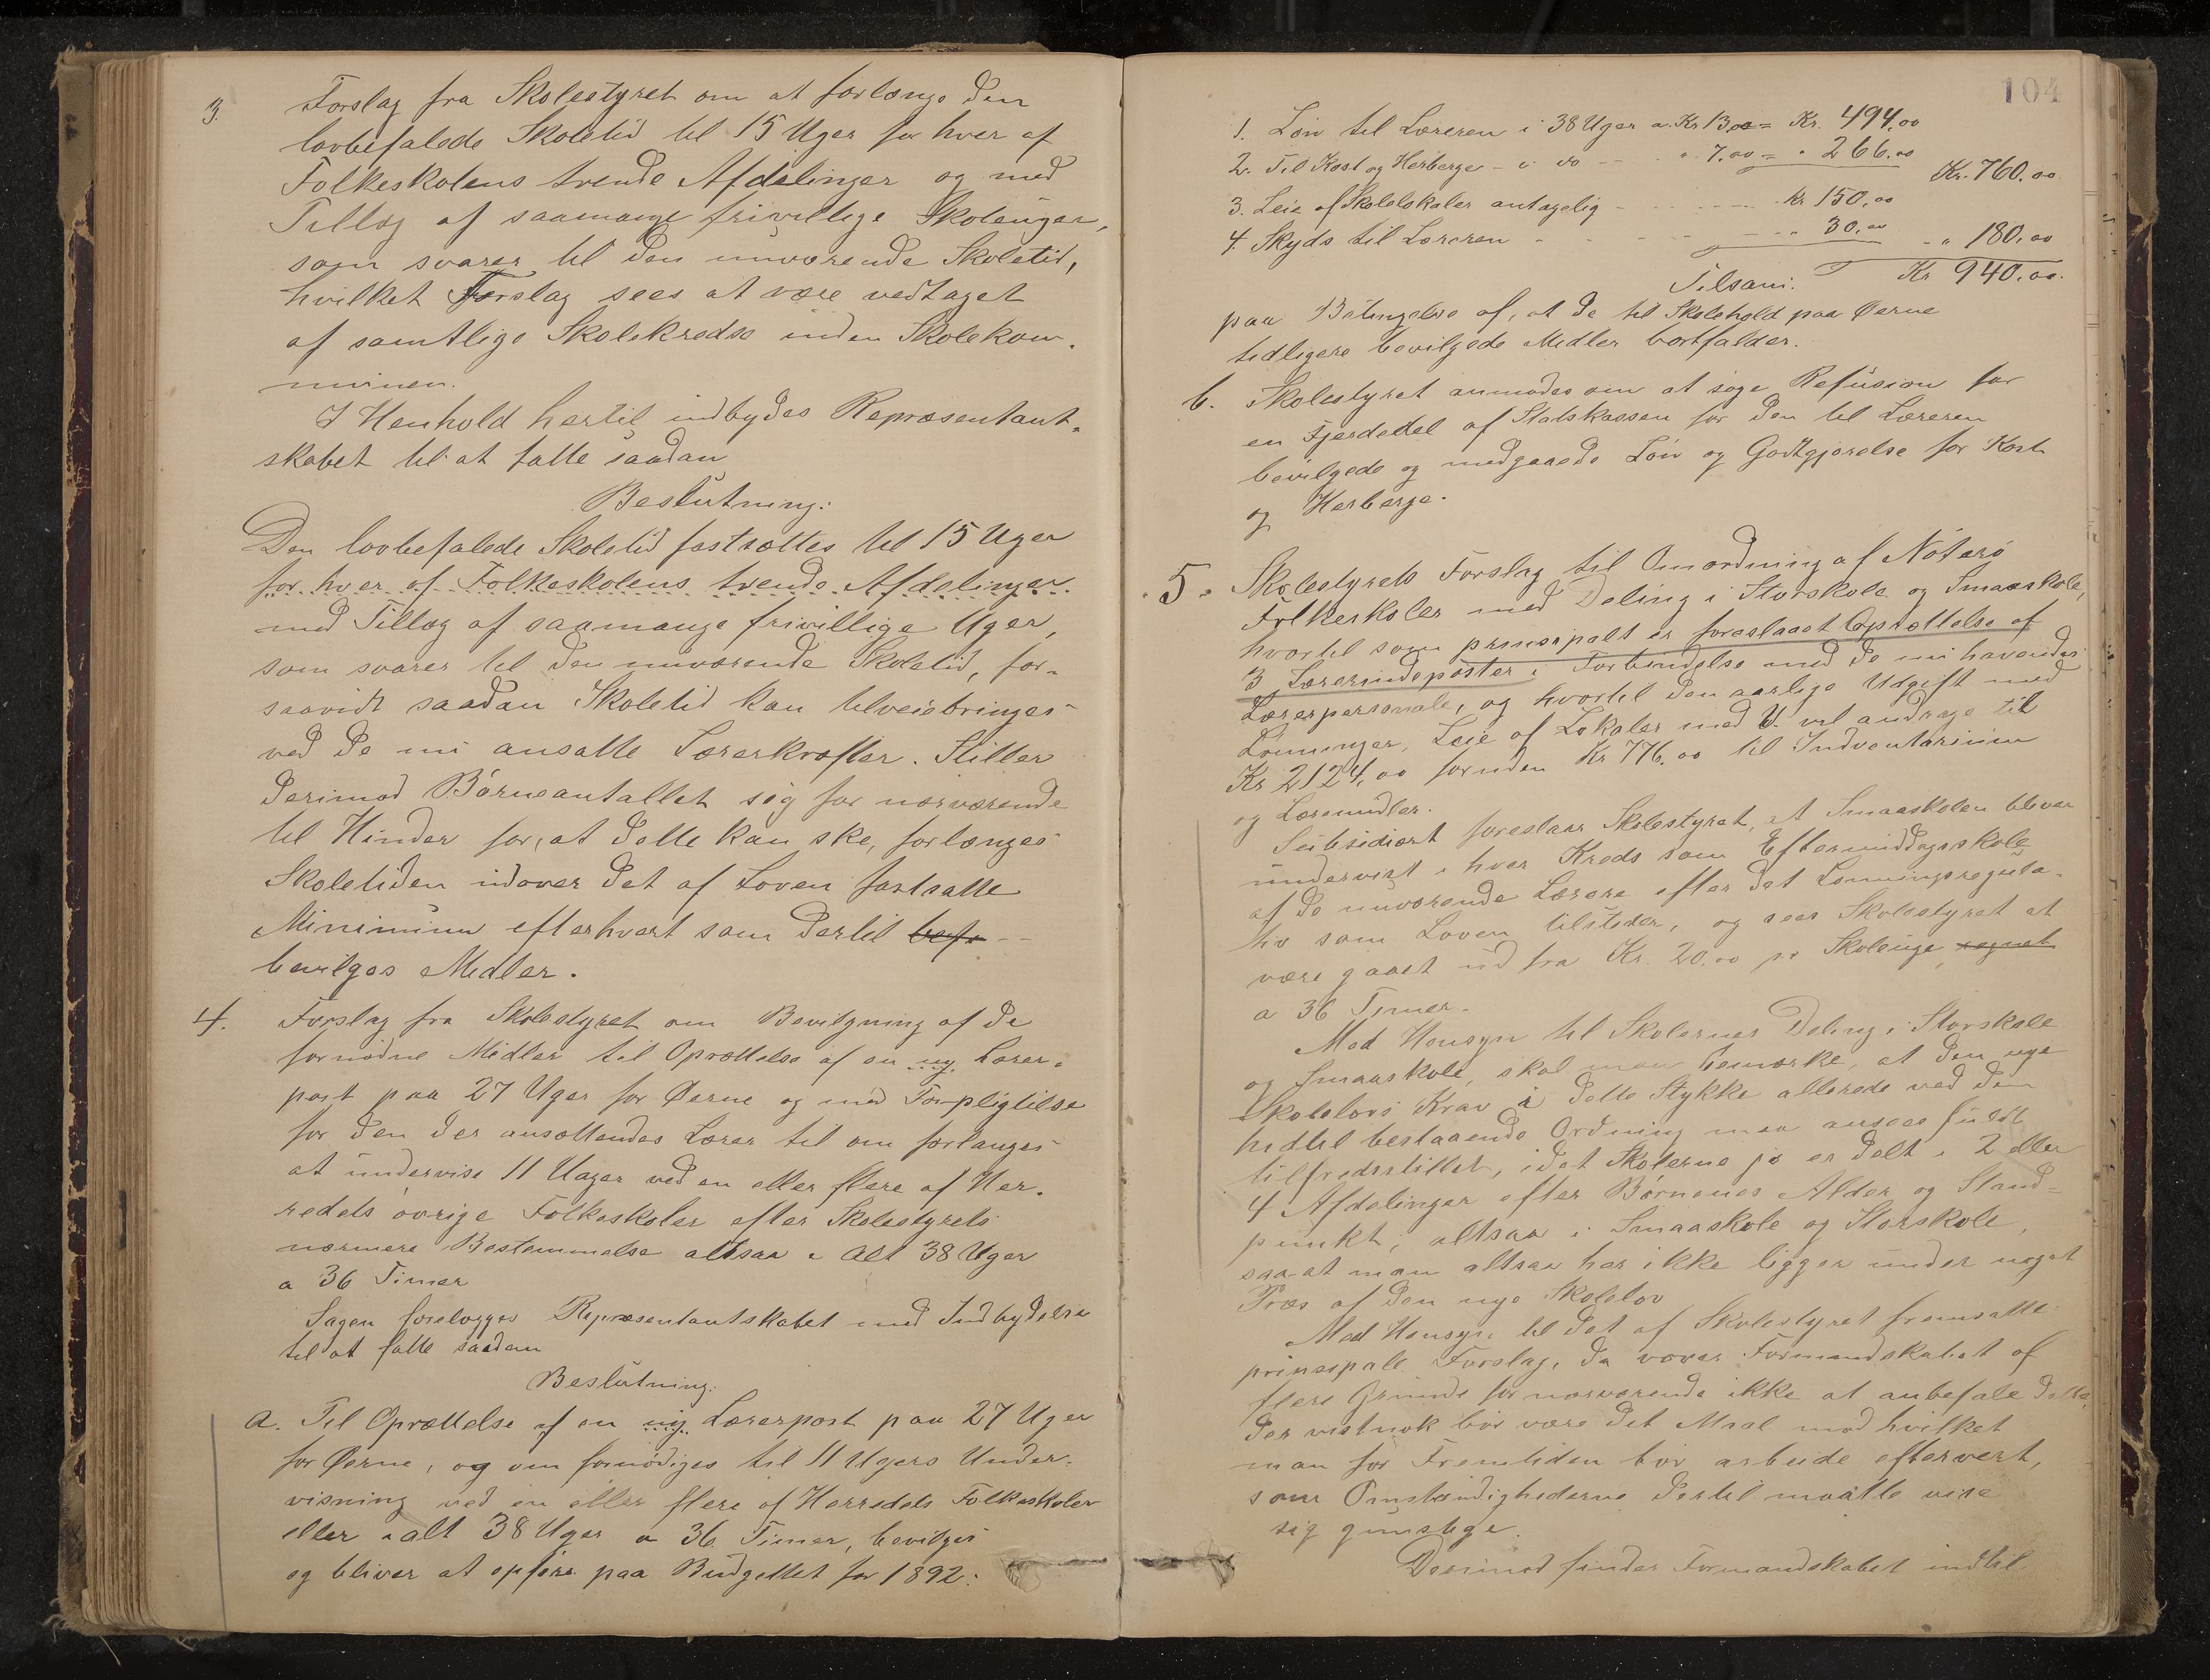 3. Forslag fra Skolestyret om at forlænge den
lovbefalede Skoletid til 15 Uger for hver af
Folkeskolens trende Afdelinger og med
Tillæg af saamange frivillige Skoleuger,
som svarer til den nuværende Skoletid,
hvilket Forslag sees at være vedtaget
af samtlige Skolekredse inden Skolekom-
munen.
I Henhold hertil indbydes Repræsentant-
skabet til at fatte saadan
Beslutning:
Den lovbefalede Skoletid fastsættes til 15 Uger
for hver af Folkeskolens trende Afdelinger
med Tillæg af saamange frivillige Uger,
som svarer til den nuværende Skoletid, for-
saavidt saadan Skoletid kan tilveiebringes
ved de nu ansatte Lærerkræfter. Stiller
derimod Børneantallet sig for nærværende
til Hinder for, at dette kan ske, forlænges
Skoletiden udover det af Loven fastsatte
Minimum efterhvert som dertil befr
bevilges Midler.
4. Forslag fra Skolestyret om Bevilgning af de
fornødne Midler til Oprættelse af en ny Lærer-
post paa 27 Uger for Øerne og med Forpligtelse
for den der ansættendes Lærer til om forlanges
at undervise 11 Uager ved en eller flere af Her-
redets øvrige Folkeskoler efter Skolestyrets
nærmere Bestemmelse altsaa i alt 38 Uger
a 36 Timer
Sagen forelægges Repræsentantskabet med Indbydelse
til at fatte saadan
Beslutning:
a. Til Oprættelse af en ny Lærerpost paa 27 Uger
for Øerne, og om fornødiges til 11 Ugers Under-
visning ved en eller flere af Herredets Folkeskoler
eller ialt 38 Uger a 36 Timer, bevilges
og bliver at opføre paa Budgettet for 1892:
104
1. Løn til Læreren i 38 Uger a. Kr 13,00 = Kr. 494,00
2. Til Kost og Herberge - i do - " 7,00 = " 266.00
Kr. 760.00
3. Leie af Skolelokaler antagelig - Kr 150,00
4. Skyds til Læreren - " 30,00 - " 180,00
Tilsam. Kr 940.00.
paa Betingelse af, at de til Skolehold paa Øerne
tidligere bevilgede Midler bortfalder.
b. Skolestyret anmodes om at søge Refusion for
en Fjerdedel af Statskassen for den til Læreren
bevilgede og medgaaede Løn og Godtgjørelse for Kost
og Herberge.
5. Skolestyrets Forslag til Omordning af Nøterø
Folkeskoler med Deling i Storskole og Smaaskole,
hvortil som prinsipalt er foreslaaet Oprættelse af
3 Lærerindeposter i Forbindelse med de nu havendes
Lærerpersonale, og hvortil den aarlige Udgift med
Lønninger, Leie af Lokaler med V. vil andrage til
Kr 2124,00 foruden Kr 776.00 til Indventarium
og Læremidler.
Subsidiært foreslaar Skolestyret, at Smaaskolen bliver
undervist i hver Kreds som Eftermiddagsskole
af de nuværende Lærere efter det Lønningsregula-
tiv som Loven tilsteder, og sees Skolestyret at
være gaaet ud fra Kr. 20.00 pr Skoleuge, regnet
a 36 Timer.
Med Hensyn til Skolernes Deling i Storskole
og Smaaskole, skal man bemærke, at den nye
Skolelovs Krav i dette Stykke allerede ved den
hidtil bestaaende Ordning maa ansees fuldt
tilfredsstillet, idet Skolerne jo er delt i 2 eller
4 Afdelinger efter Børnenes Alder og Stand-
punkt, altsaa i Smaaskole og Storskole,
saa at man altsaa her ikke ligger under noget
Præs af den nye Skolelov
Med Hensyn til det af Skolestyret fremsatte
prinsipale Forslag, da vover Formandskabet af
flere Grunde for nærværende ikke at anbefale dette,
der vistnok bør være det Maal mod hvilket
man for Fremtiden bør arbeide eftervert,
som Omstændighederne dertil maatte vise
sig gunstige.
Derimod finder Formandskabet indtil